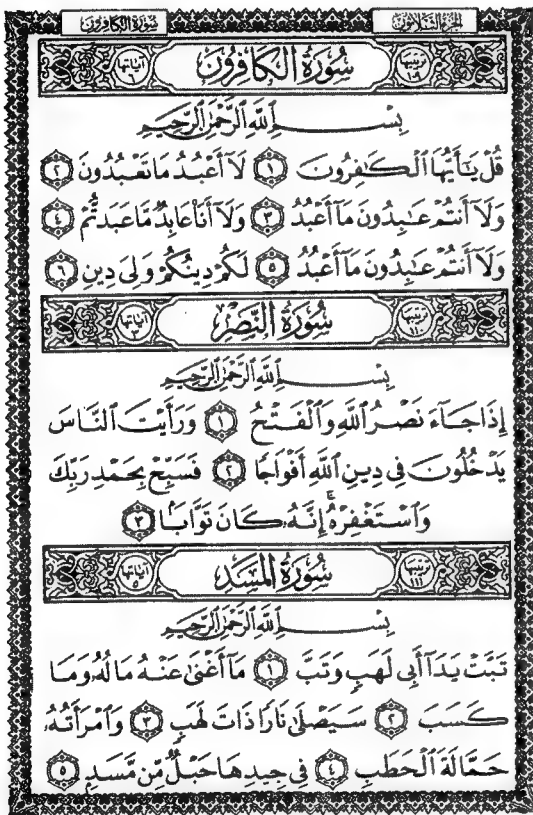 الجزء الثلاثون سورة الكافرون
ترتيبها ١٠٩ سُورَةُ الكَافِرُونَ آياتها ٦
بِسْمِ اللَّهِ الرَّحْمَٰنِ الرَّحِيمِ
قُلْ يَـٰٓأَيُّهَا ٱلْكَـٰفِرُونَ ١ لَآ أَعْبُدُ مَا تَعْبُدُونَ ٢
وَلَآ أَنتُمْ عَـٰبِدُونَ مَآ أَعْبُدُ ٣ وَلَآ أَنَا۠ عَابِدٌ مَّا عَبَدتُّمْ ٤
وَلَآ أَنتُمْ عَـٰبِدُونَ مَآ أَعْبُدُ ٥ لَكُمْ دِينُكُمْ وَلِيَ دِينِ ٦
ترتيبها ١١٠ سُورَةُ النَّصْرِ آياتها ٣
بِسْمِ اللَّهِ الرَّحْمَٰنِ الرَّحِيمِ
إِذَا جَآءَ نَصْرُ ٱللَّهِ وَٱلْفَتْحُ ١ وَرَأَيْتَ ٱلنَّاسَ
يَدْخُلُونَ فِى دِينِ ٱللَّهِ أَفْوَاجًا ٢ فَسَبِّحْ بِحَمْدِ رَبِّكَ
وَٱسْتَغْفِرْهُ ۚ إِنَّهُۥ كَانَ تَوَّابًۢا ٣
ترتيبها ١١١ سُورَةُ المَسَدِ آياتها ٥
بِسْمِ اللَّهِ الرَّحْمَٰنِ الرَّحِيمِ
تَبَّتْ يَدَآ أَبِى لَهَبٍ وَتَبَّ ١ مَآ أَغْنَىٰ عَنْهُ مَالُهُۥ وَمَا
كَسَبَ ٢ سَيَصْلَىٰ نَارًا ذَاتَ لَهَبٍ ٣ وَٱمْرَأَتُهُۥ
حَمَّالَةَ ٱلْحَطَبِ ٤ فِى جِيدِهَا حَبْلٌ مِّن مَّسَدٍۭ ٥